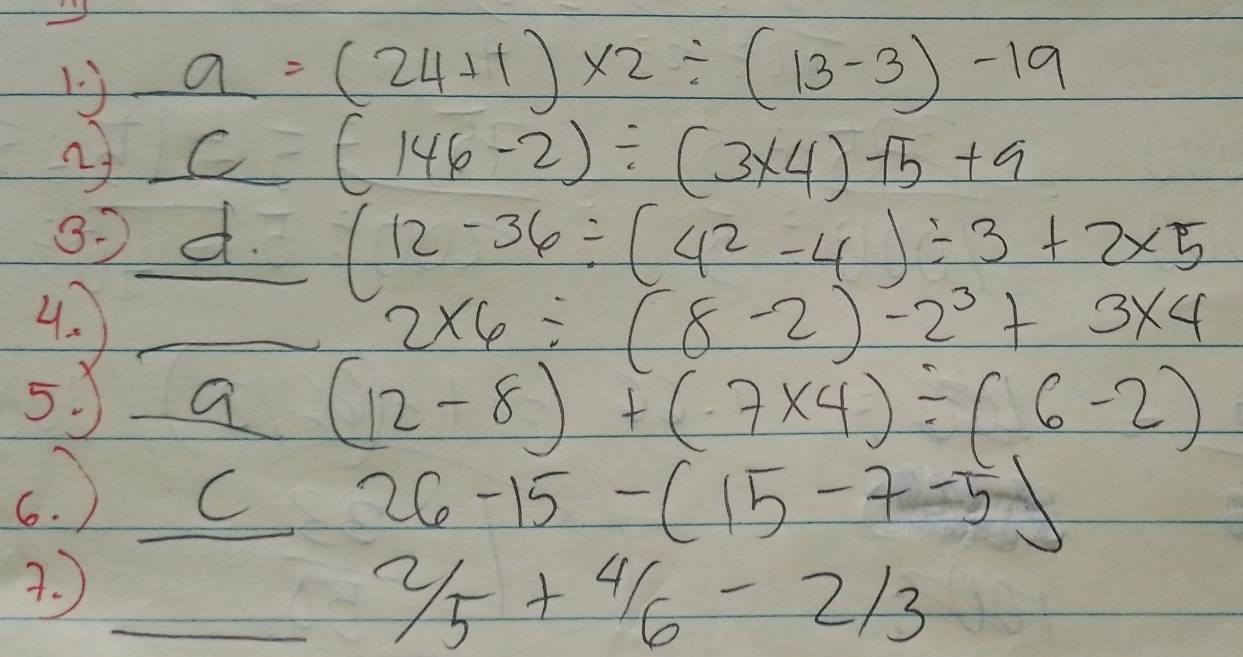 1.) a = (24+1) ×2 ÷ (13-3) -19
2.) c = (146-2) ÷ (3×4) -15 +9
3.) d. (12-36 ÷ (4² -4) ÷3 + 2×5
4.) 2×6 ÷ (8-2) -2³ + 3×4
5.) a (12-8) + (7×4) ÷ (6-2)
6.) c 26-15 - (15-7-5)
7.) 2/5 + 4/6 - 2/3